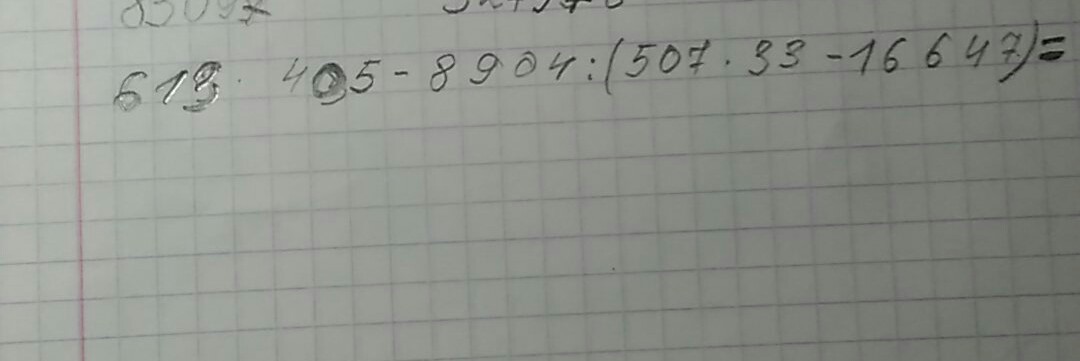 619 · 405 - 8904 : (507 · 33 - 16647) =